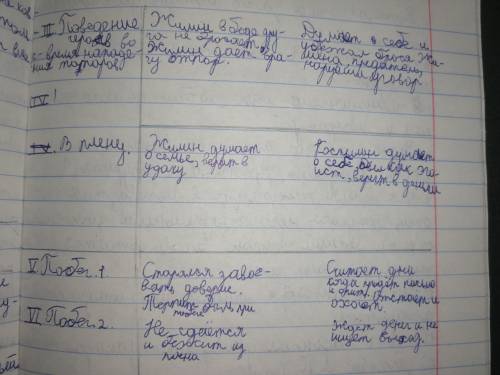 - III. Поведение
героев во
время нападе-
ния татаров
Жилин в беде дру-
га не бросает.
Жилин дает вра-
гу отпор.
Думает о себе и
убежал бросв Жи-
лина, предатель,
нарушил уговор
IV!
IV. В плену.
Жилин думает
о семье, верит в
удачу
Костылин думает
о себе, был как эго-
ист, верит в деньги
V. Побег. 1
Старался завое-
вать доверие.
Терпит боль при
побеге
Считает дни
когда придёт письмо
и спит. Отстает и
охает.
VI. Побег 2.
Не сдаётся
и бежит из
плена
Ждёт денег и не
ищет выход.